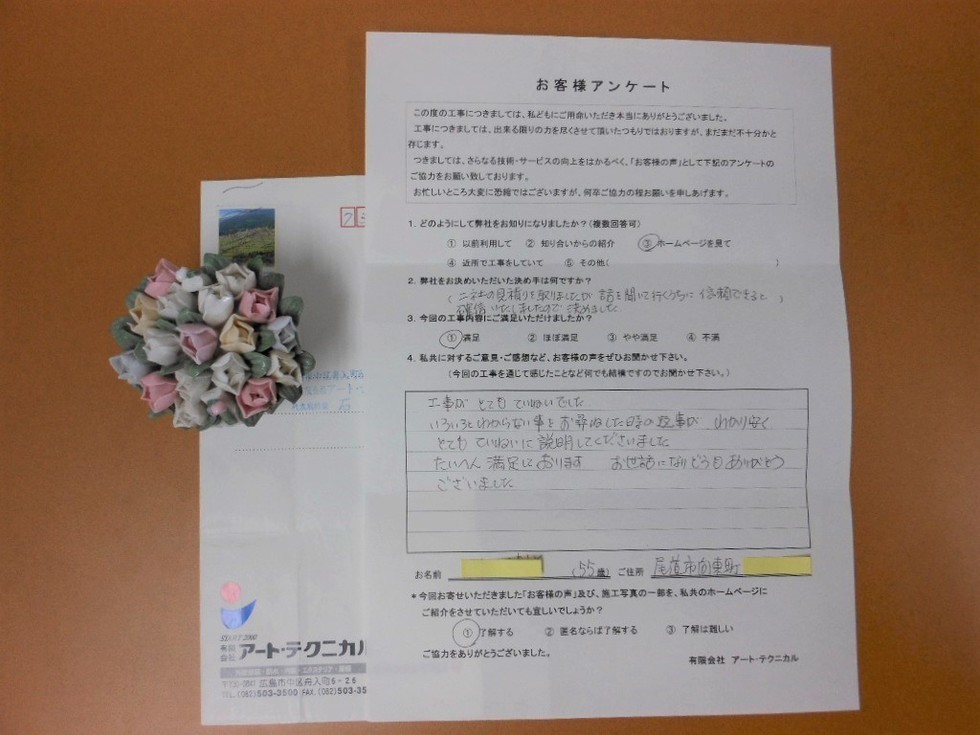 お客様アンケート
この度の工事につきましては、私どもにご用命いただき本当にありがとうございました。
工事につきましては、出来る限りの力を尽くさせて頂いたつもりではおりますが、まだまだ不十分かと
存じます。
つきましては、さらなる技術・サービスの向上をはかるべく、「お客様の声」として下記のアンケートの
ご協力をお願い致しております。
お忙しいところ大変に恐縮ではございますが、何卒ご協力の程お願いを申しあげます。
1. どのようにして弊社をお知りになりましたか?(複数回答可)
① 以前利用して ② 知り合いからの紹介 ③ ホームページを見て
④ 近所で工事をしていて ⑤ その他( )
2. 弊社をお決めいただいた決め手は何ですか?
(二社の見積りを取りましたが 話を聞いて行くうちに 信頼できると)
確信いたしましたので 決めました
3. 今回の工事内容にご満足いただけましたか?
① 満足 ② ほぼ満足 ③ やや満足 ④ 不満
4. 私共に対するご意見・ご感想など、お客様の声をぜひお聞かせ下さい。
(今回の工事を通じて感じたことなど何でも結構ですのでお聞かせ下さい。)
工事が とても ていねいでした
いろいろとわからない事をお尋ねした時の返事が わかり安く
とても ていねいに 説明してくださいました
たいへん 満足しております お世話になりどうもありがとう
ございました
お名前 (55歳) ご住所 尾道市向東町
*今回お寄せいただきました「お客様の声」及び、施工写真の一部を、私共のホームページに
ご紹介をさせていただいても宜しいでしょうか?
① 了解する ② 匿名ならば了解する ③ 了解は難しい
ご協力をありがとうございました。
有限会社 アート・テクニカル
START 2000
有限会社 アート・テクニカル
広島市中区舟入町6-26
TEL.(082)503-3500 FAX.(082)503-35